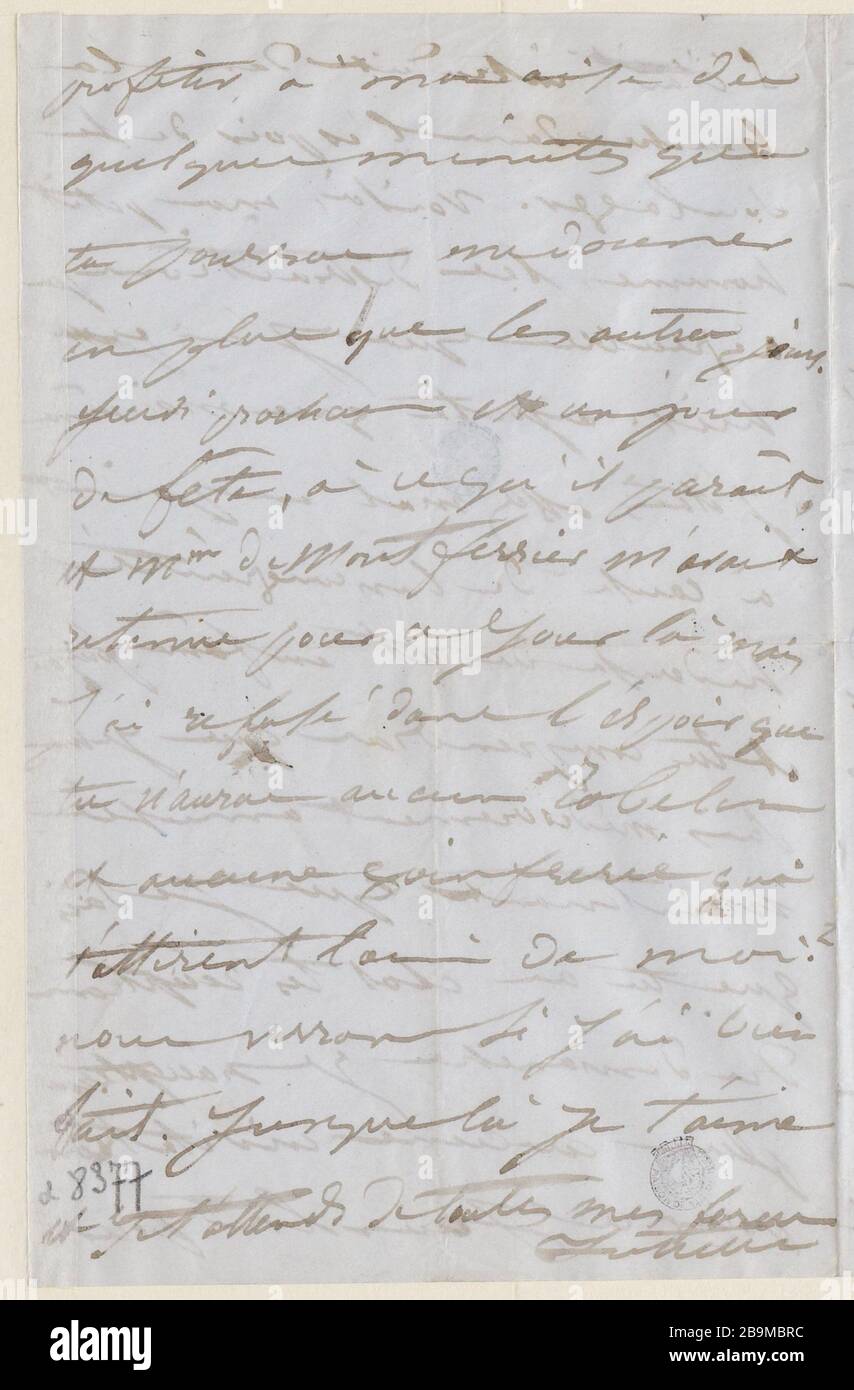 profiter à mon aise des
quelques minutes que
tu pourras me donner
en plus que les autres jours.
Jeudi prochain est un jour
de fête, à ce qu'il paraît,
et Mme de Montferrier m'avait
retenue pour ce jour là mais
j'ai refusé dans l'espoir que
tu n'aurais aucun
et aucune confrérie qui
t'attirent loin de moi.
nous verrons si j'ai bien
fait. Jusque là je t'aime
α 8377
et je t'attends de toutes mes forces
Juliette
alamy
Image ID: 2B9MBRC
www.alamy.com